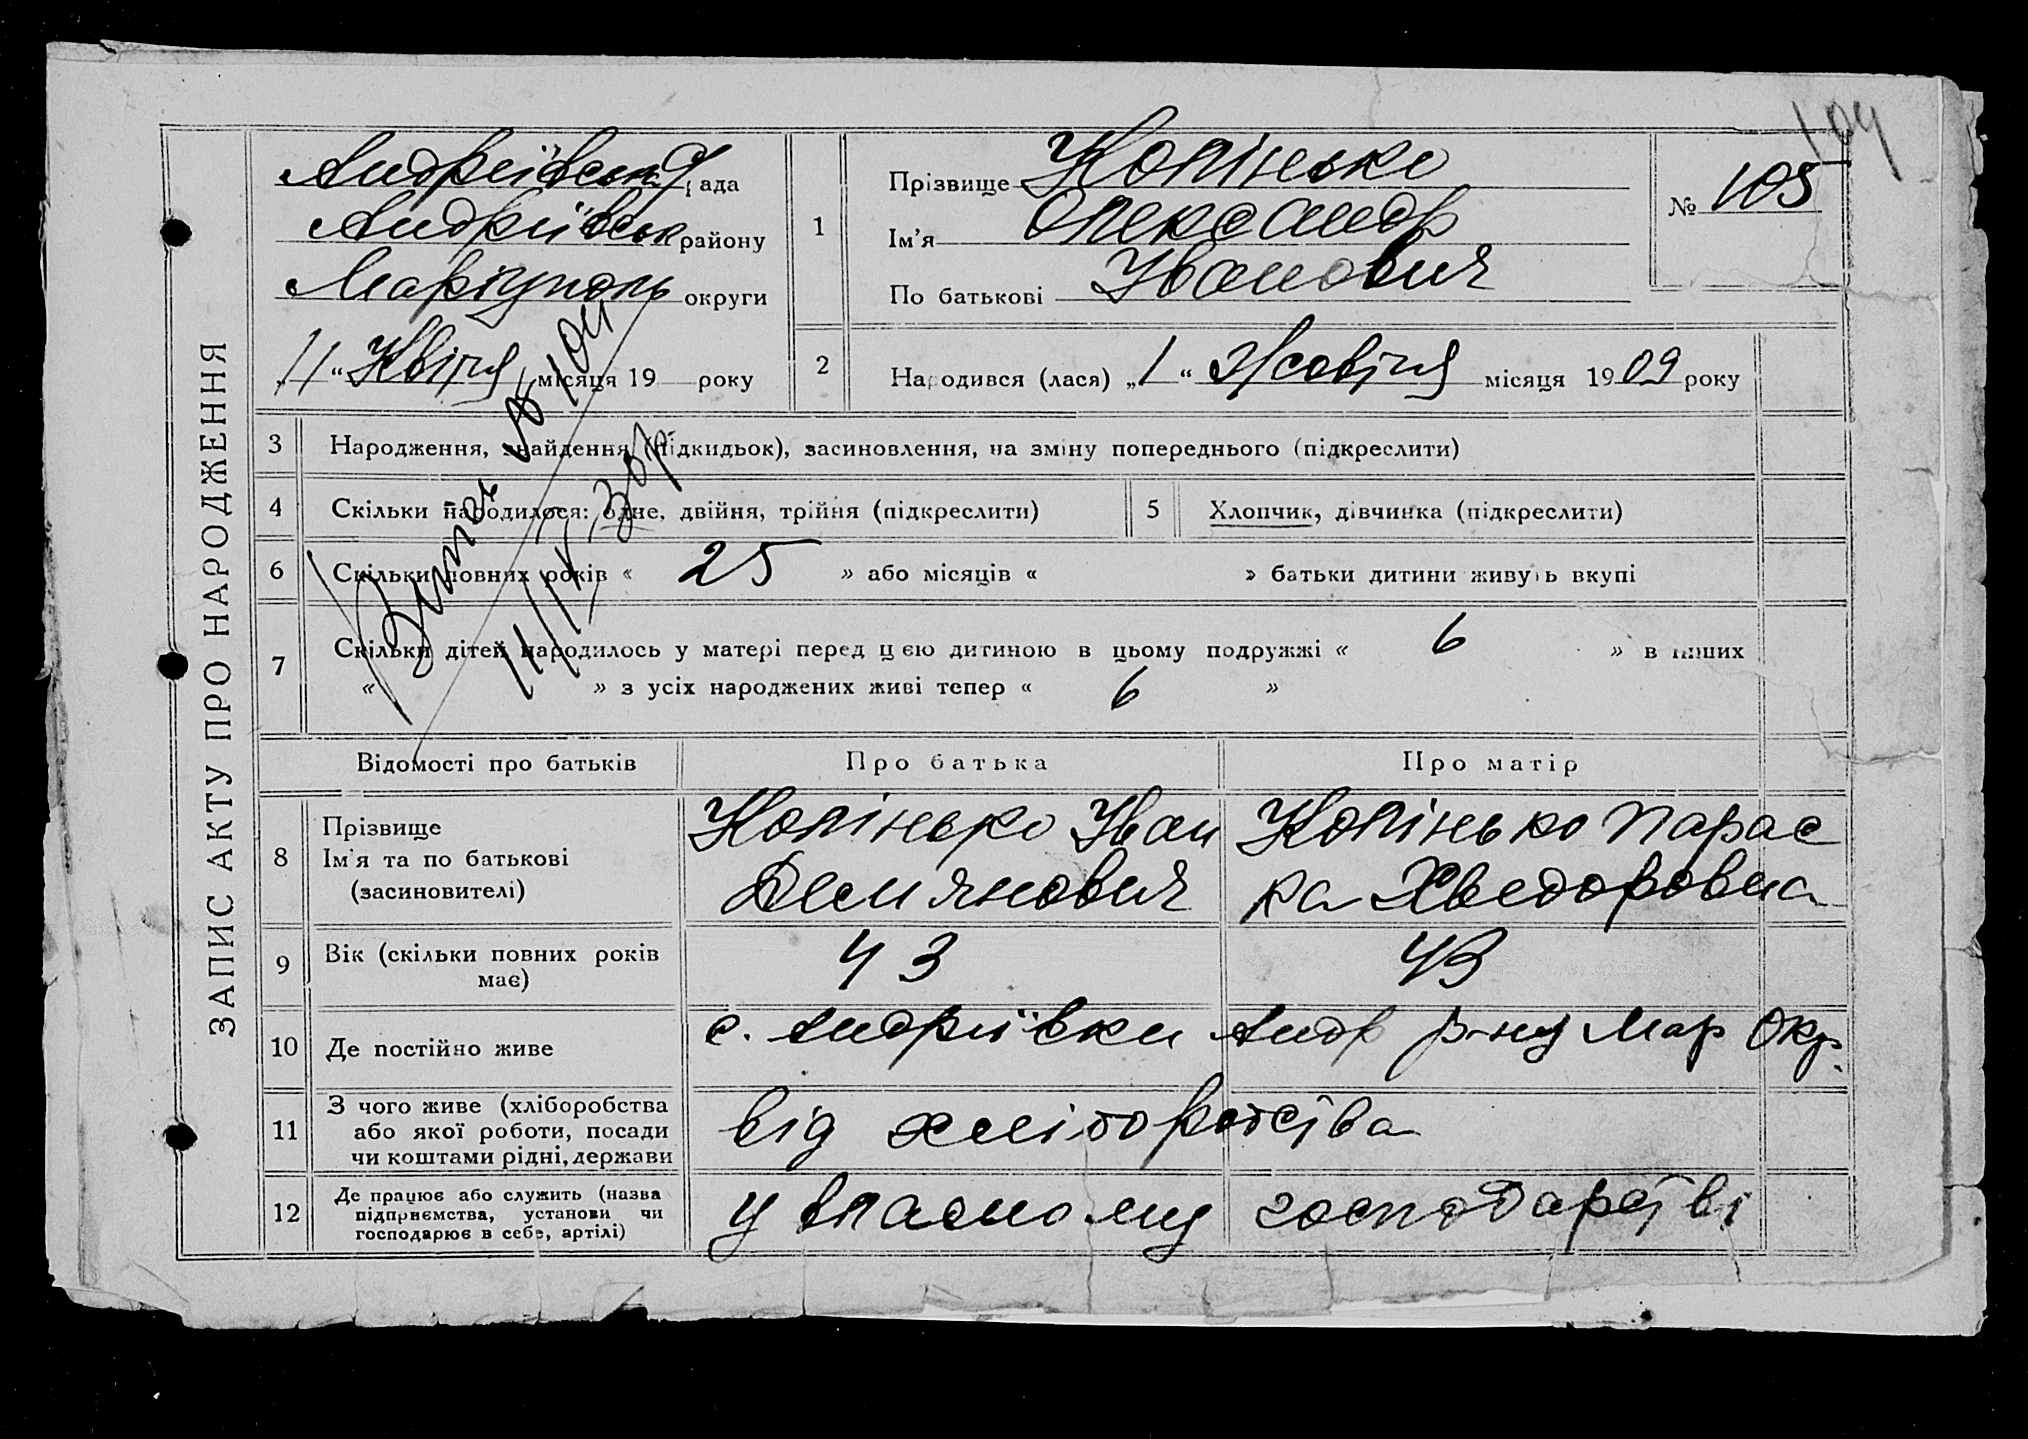 104
ЗАПИС АКТУ ПРО НАРОДЖЕННЯ
Андріївська рада
Андріївськ району
Маріуполь округи
„11“ Квітня місяця 19 року
1
Прізвище Копінько
Ім'я Олександр
По батькові Іванович
№ 105
2
Народився (лася) „1“ Жовтня місяця 1909 року
3 Народження, знайдення (підкидьок), засиновлення, на зміну попереднього (підкреслити)
4 Скільки народилося: одне, двійня, трійня (підкреслити)
5 Хлопчик, дівчинка (підкреслити)
6 Скільки повних років « 25 » або місяців « » батьки дитини живуть вкупі
7 Скільки дітей народилось у матері перед цією дитиною в цьому подружжі « 6 » в інших
« » з усіх народжених живі тепер « 6 »
Витяг № 104
11/IV 30 р.
Відомості про батьків Про батька Про матір
8 Прізвище
Ім'я та по батькові
(засиновителі)
Копінько Іван
Демянович
Копінько Парас
ка Хведоровна
9 Вік (скільки повних років
має)
43 43
10 Де постійно живе с. Андріївки Андр р-ну Мар Окр.
11 З чого живе (хліборобства
або якої роботи, посади
чи коштами рідні, держави
від хліборобства
12 Де працює або служить (назва
підприємства, установи чи
господарює в себе, артілі)
у власному господарстві